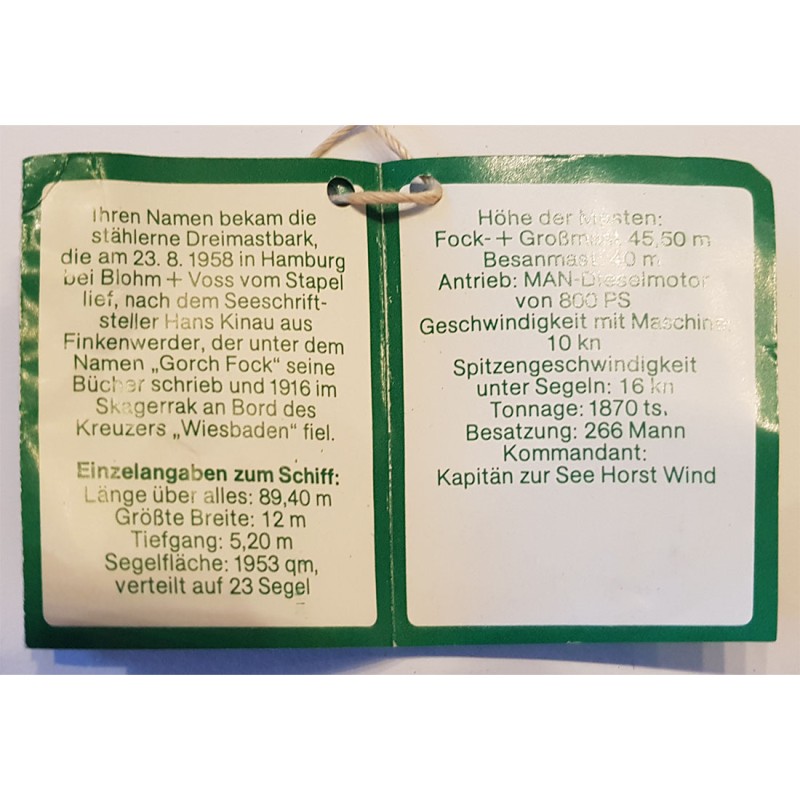 Ihren Namen bekam die
stählerne Dreimastbark,
die am 23. 8. 1958 in Hamburg
bei Blohm + Voss vom Stapel
lief, nach dem Seeschrift-
steller Hans Kinau aus
Finkenwerder, der unter dem
Namen „Gorch Fock“ seine
Bücher schrieb und 1916 im
Skagerrak an Bord des
Kreuzers „Wiesbaden“ fiel.
Einzelangaben zum Schiff:
Länge über alles: 89,40 m
Größte Breite: 12 m
Tiefgang: 5,20 m
Segelfläche: 1953 qm,
verteilt auf 23 Segel
Höhe der Masten:
Fock- + Großmast 45,50 m
Besanmast 40 m
Antrieb: MAN-Dieselmotor
von 800 PS
Geschwindigkeit mit Maschine
10 kn
Spitzengeschwindigkeit
unter Segeln: 16 kn
Tonnage: 1870 ts.
Besatzung: 266 Mann
Kommandant:
Kapitän zur See Horst Wind